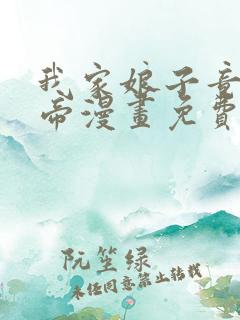 我家娘子竟
帝漫畫免費
阮笙绿
未经同意禁止转载